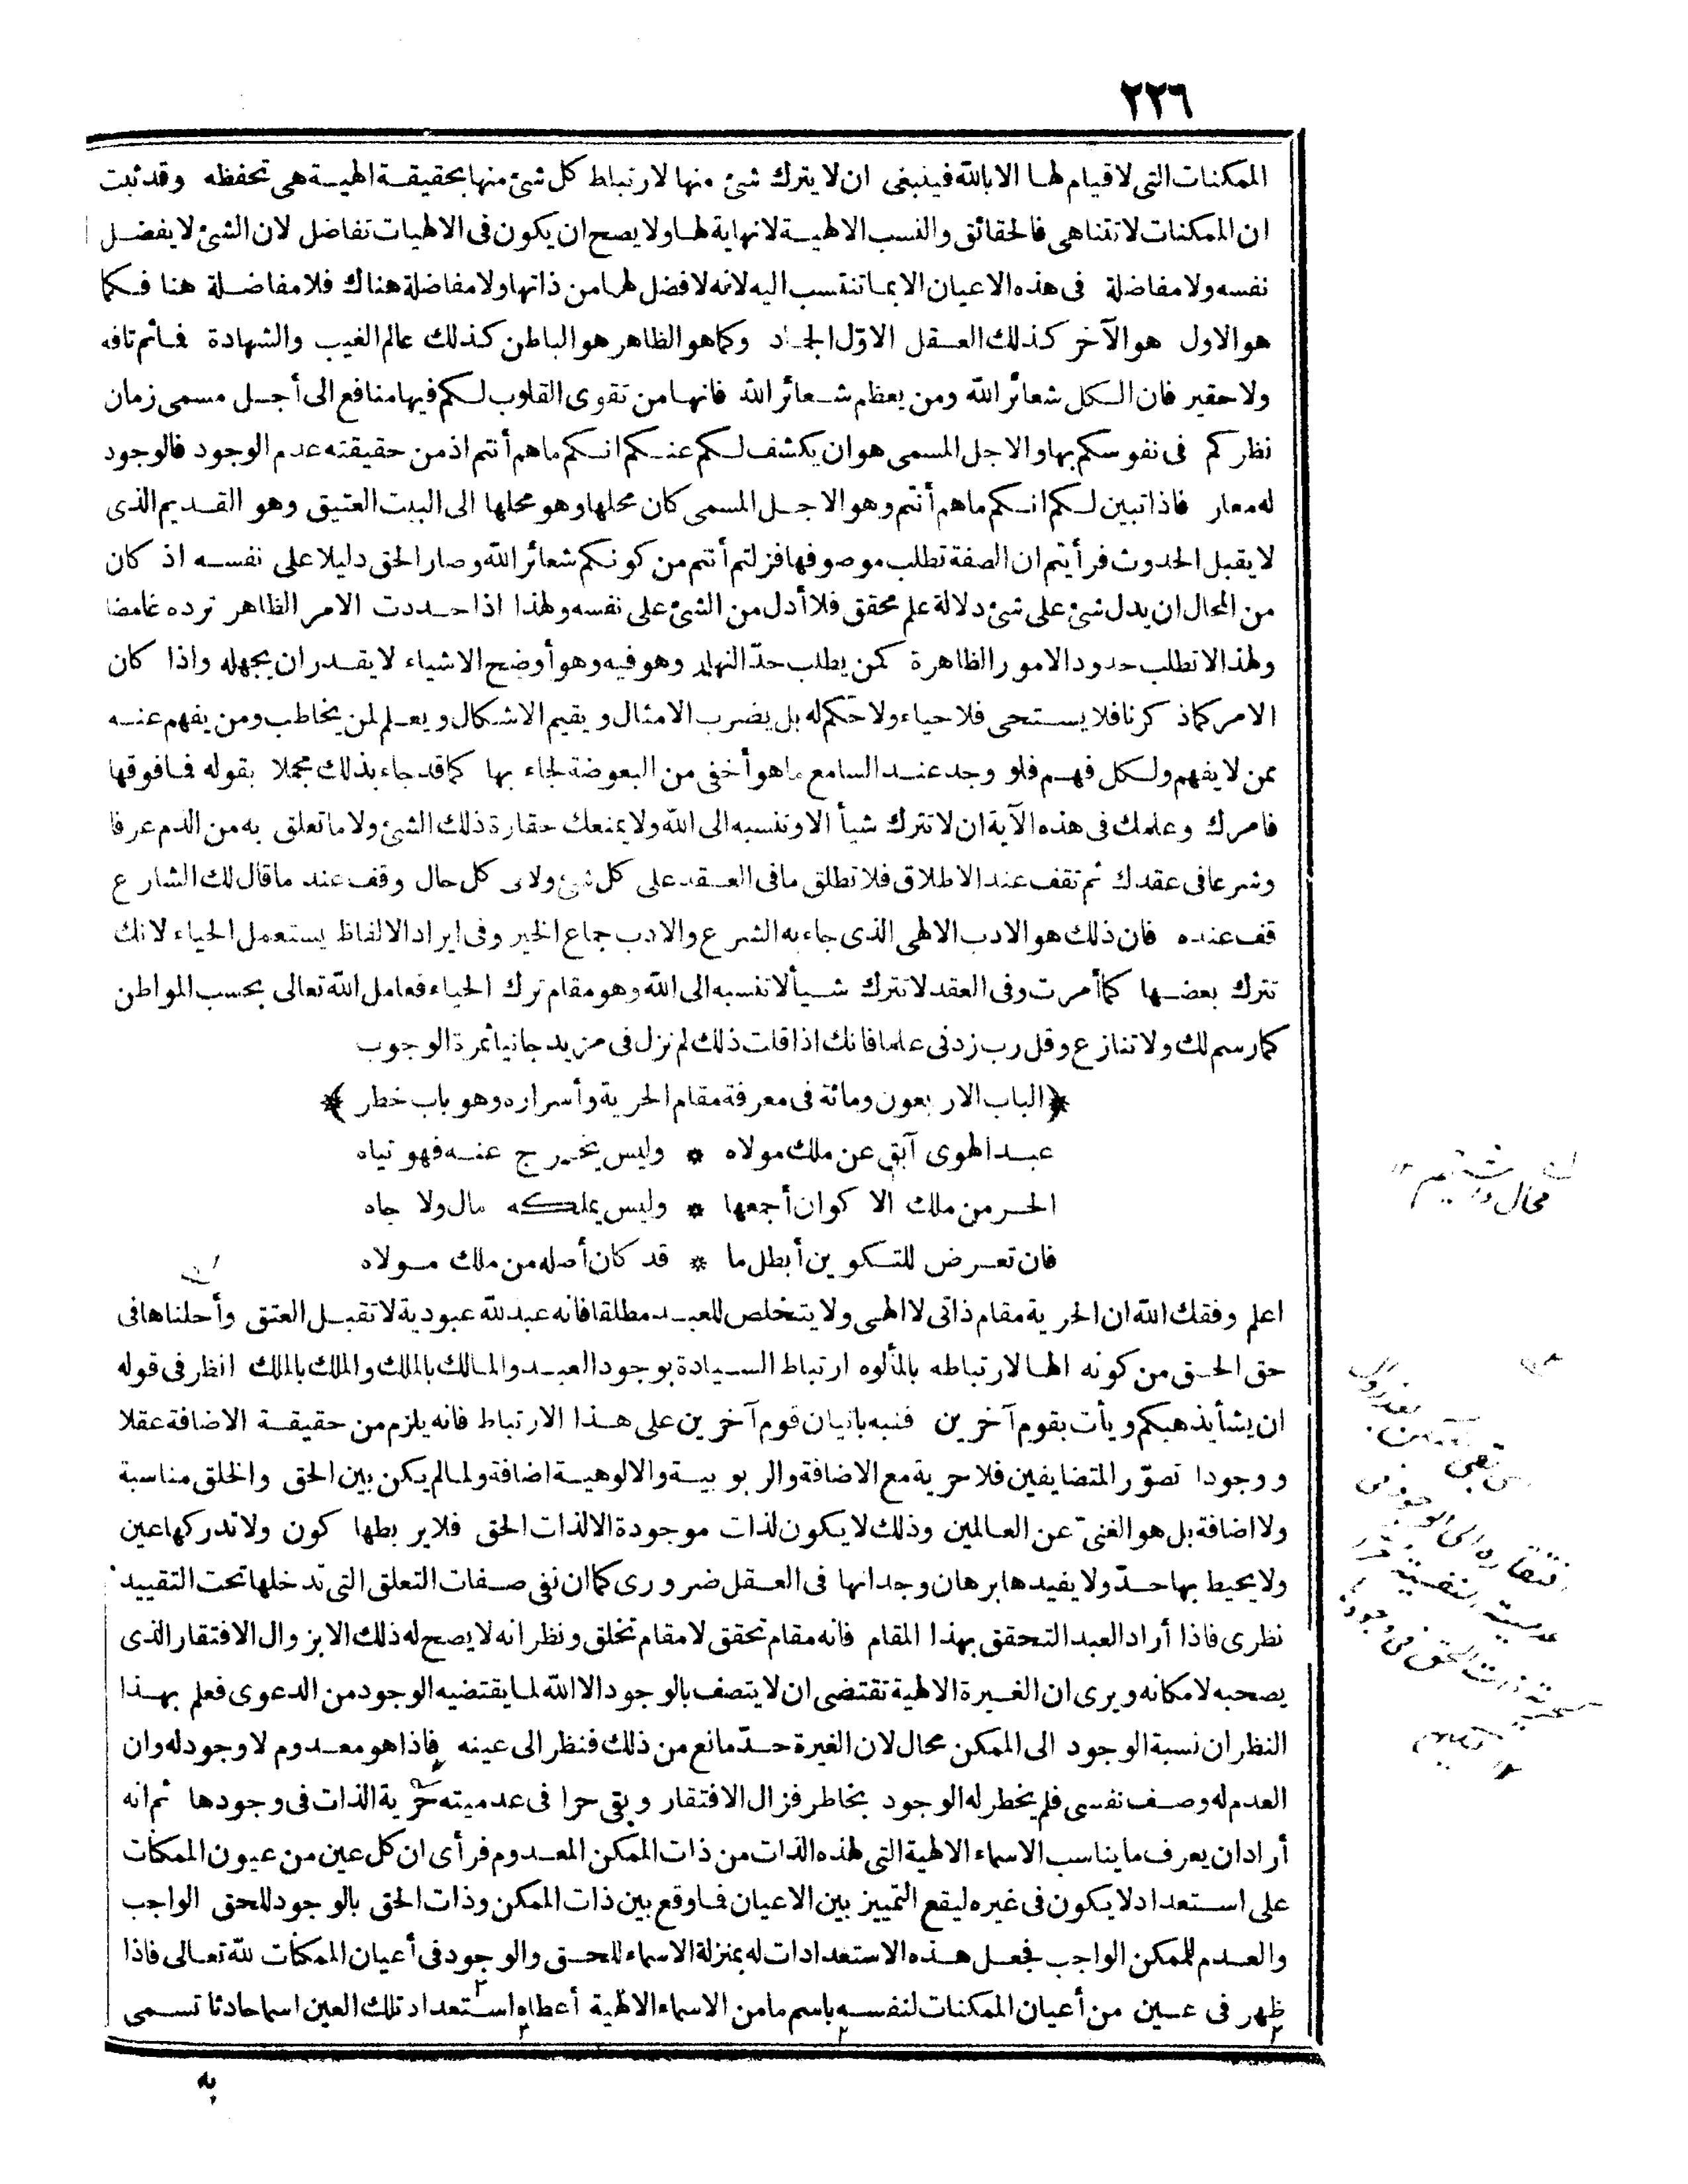 ٢٢٦
الممكنات التى لا قيام لها الا بالله فينبغى ان لا يترك شئ منها لارتباط كل شئ منها بحقيقة الهية هى تحفظه وقد ثبت
ان الممكنات لا تتناهى فالحقائق والنسب الالهية لا نهاية لها ولا يصح ان يكون فى الالهيات تفاضل لان الشئ لا يفضل
نفسه ولا مفاضلة فى هذه الاعيان الا بما تنتسب اليه لانه لا فضل لها من ذاتها ولا مفاضلة هناك فلا مفاضلة هنا فكما
هو الاول هو الآخر كذلك العقل الاوّل الجماد وكما هو الظاهر هو الباطن كذلك عالم الغيب والشهادة فما ثم تافه
ولا حقير فان الكل شعائر الله ومن يعظم شعائر الله فانها من تقوى القلوب لكم فيها منافع الى أجل مسمى زمان
نظركم فى نفوسكم بها والاجل المسمى هو ان يكشف لكم عنكم انكم ما هم أنتم اذ من حقيقته عدم الوجود فالوجود
له معار فاذا تبين لكم انكم ما هم أنتم وهو الاجل المسمى كان محلها وهو محلها الى البيت العتيق وهو القديم الذى
لا يقبل الحدوث فرأيتم ان الصفة تطلب موصوفها فزلتم أنتم من كونكم شعائر الله وصار الحق دليلا على نفسه اذ كان
من المحال ان يدل شئ على شئ دلالة علم محقق فلا أدل من الشئ على نفسه ولهذا اذا حددت الامر الظاهر ترده غامضا
ولهذا لا تطلب حدود الامور الظاهرة كمن يطلب حدّ النهار وهو فيه وهو أوضح الاشياء لا يقدر ان يجهله واذا كان
الامر كما ذكرنا فلا يستحى فلا حياء ولا حكم له بل يضرب الامثال ويقيم الاشكال ويعلم لمن يخاطب ومن يفهم عنه
ممن لا يفهم ولكل فهم فلو وجد عند السامع ما هو أخفى من البعوضة لجاء بها كما قد جاء بذلك مجملا بقوله فما فوقها
فامرك وعلمك فى هذه الآية ان لا تترك شيأ الا وتنسبه الى الله ولا يمنعك حقارة ذلك الشئ ولا ما تعلق به من الذم عرفا
وشرعا فى عقدك ثم تقف عند الاطلاق فلا تطلق ما فى العقد على كل شئ ولا فى كل حال وقف عند ما قال لك الشارع
قف عنده فان ذلك هو الادب الالهى الذى جاء به الشرع والادب جماع الخير وفى ايراد الالفاظ يستعمل الحياء لانك
تترك بعضها كما أمرت وفى العقد لا تترك شيأ لا تنسبه الى الله وهو مقام ترك الحياء فعامل الله تعالى بحسب المواطن
كما رسم لك ولا تنازع وقل رب زدنى علما فانك اذا قلت ذلك لم نزل فى مزيد جانيا ثمرة الوجوب
﴿الباب الاربعون ومائة فى معرفة مقام الحرية وأسراره وهو باب خطر﴾
عبد الهوى آبق عن ملك مولاه * وليس يخرج عنه فهو تياه
الحر من ملك الاكوان أجمعها * وليس يملكه مال ولا جاه
فان تعرض للتكوين أبطل ما * قد كان أصله من ملك مولاه
اعلم وفقك الله ان الحرية مقام ذاتى لا الهى ولا يتخلص للعبد مطلقا فانه عبد لله عبودية لا تقبل العتق وأحلناها فى
حق الحق من كونه الها لارتباطه بالمألوه ارتباط السيادة بوجود العبد والمالك بالملك والملك بالملك انظر فى قوله
ان يشأ يذهبكم ويأت بقوم آخرين فنبه باتيان قوم آخرين على هذا الارتباط فانه يلزم من حقيقة الاضافة عقلا
ووجودا تصوّر المتضايفين فلا حرية مع الاضافة والربوبية والالوهية اضافة ولما لم يكن بين الحق والخلق مناسبة
ولا اضافة بل هو الغنىّ عن العالمين وذلك لا يكون لذات موجودة الا لذات الحق فلا يربطها كون ولا تدركها عين
ولا يحيط بها حدّ ولا يفيدها برهان وجدانها فى العقل ضرورى كما ان نفى صفات التعلق التى تدخلها تحت التقييد
نظرى فاذا أراد العبد التحقق بهذا المقام فانه مقام تحقق لا مقام تخلق ونظر انه لا يصح له ذلك الا بزوال الافتقار الذى
يصحبه لامكانه ويرى ان الغيرة الالهية تقتضى ان لا يتصف بالوجود الا الله لما يقتضيه الوجود من الدعوى فعلم بهذا
النظر ان نسبة الوجود الى الممكن محال لان الغيرة حدّ مانع من ذلك فنظر الى عينه فاذا هو معدوم لا وجود له وان
العدم له وصف نفسى فلم يخطر له الوجود بخاطر فزال الافتقار وبقى حرا فى عدميته حرية الذات فى وجودها ثم انه
أراد ان يعرف ما يناسب الاسماء الالهية التى لهذه الذات من ذات الممكن المعدوم فرأى ان كل عين من عيون الممكنات
على استعداد لا يكون فى غيره ليقع التمييز بين الاعيان فما وقع بين ذات الممكن وذات الحق بالوجود للحق الواجب
والعدم للممكن الواجب فجعل هذه الاستعدادات له بمنزلة الاسماء للحق والوجود فى أعيان الممكنات لله تعالى فاذا
ظهر فى عين من أعيان الممكنات لنفسه باسم ما من الاسماء الالهية أعطاه استعداد تلك العين اسما حادثا تسمى
به